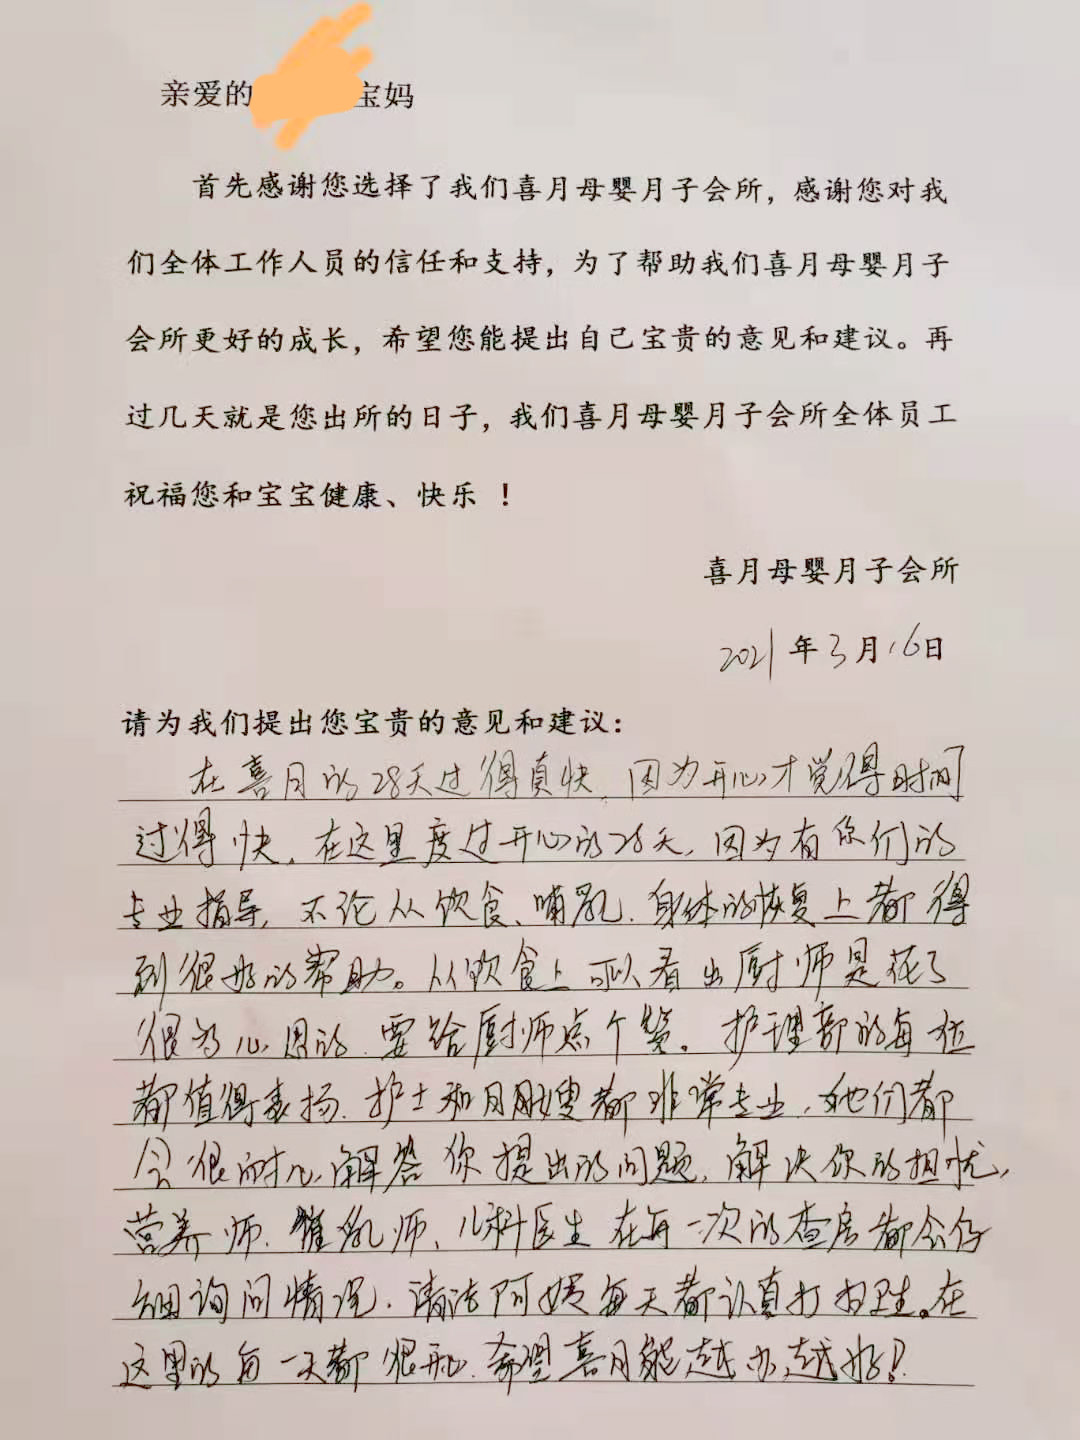 亲爱的 宝妈
首先感谢您选择了我们喜月母婴月子会所，感谢您对我
们全体工作人员的信任和支持，为了帮助我们喜月母婴月子
会所更好的成长，希望您能提出自己宝贵的意见和建议。再
过几天就是您出所的日子，我们喜月母婴月子会所全体员工
祝福您和宝宝健康、快乐 ！
喜月母婴月子会所
2021年3月16日
请为我们提出您宝贵的意见和建议：
在喜月的28天过得真快，因为开心才觉得时间
过得快，在这里度过开心的28天，因为有你们的
专业指导，不论从饮食、哺乳、身体的恢复上都得
到很好的帮助。从饮食上可以看出厨师是花了
很多心思的，要给厨师点个赞。护理部的每位
都值得表扬，护士和月嫂都非常专业，她们都
会很耐心解答你提出的问题，解决你的担忧，
营养师、催乳师、儿科医生在每一次的查房都会仔
细询问情况，清洁阿姨每天都认真打扫卫生。在
这里的每一天都很开心，希望喜月能越办越好！